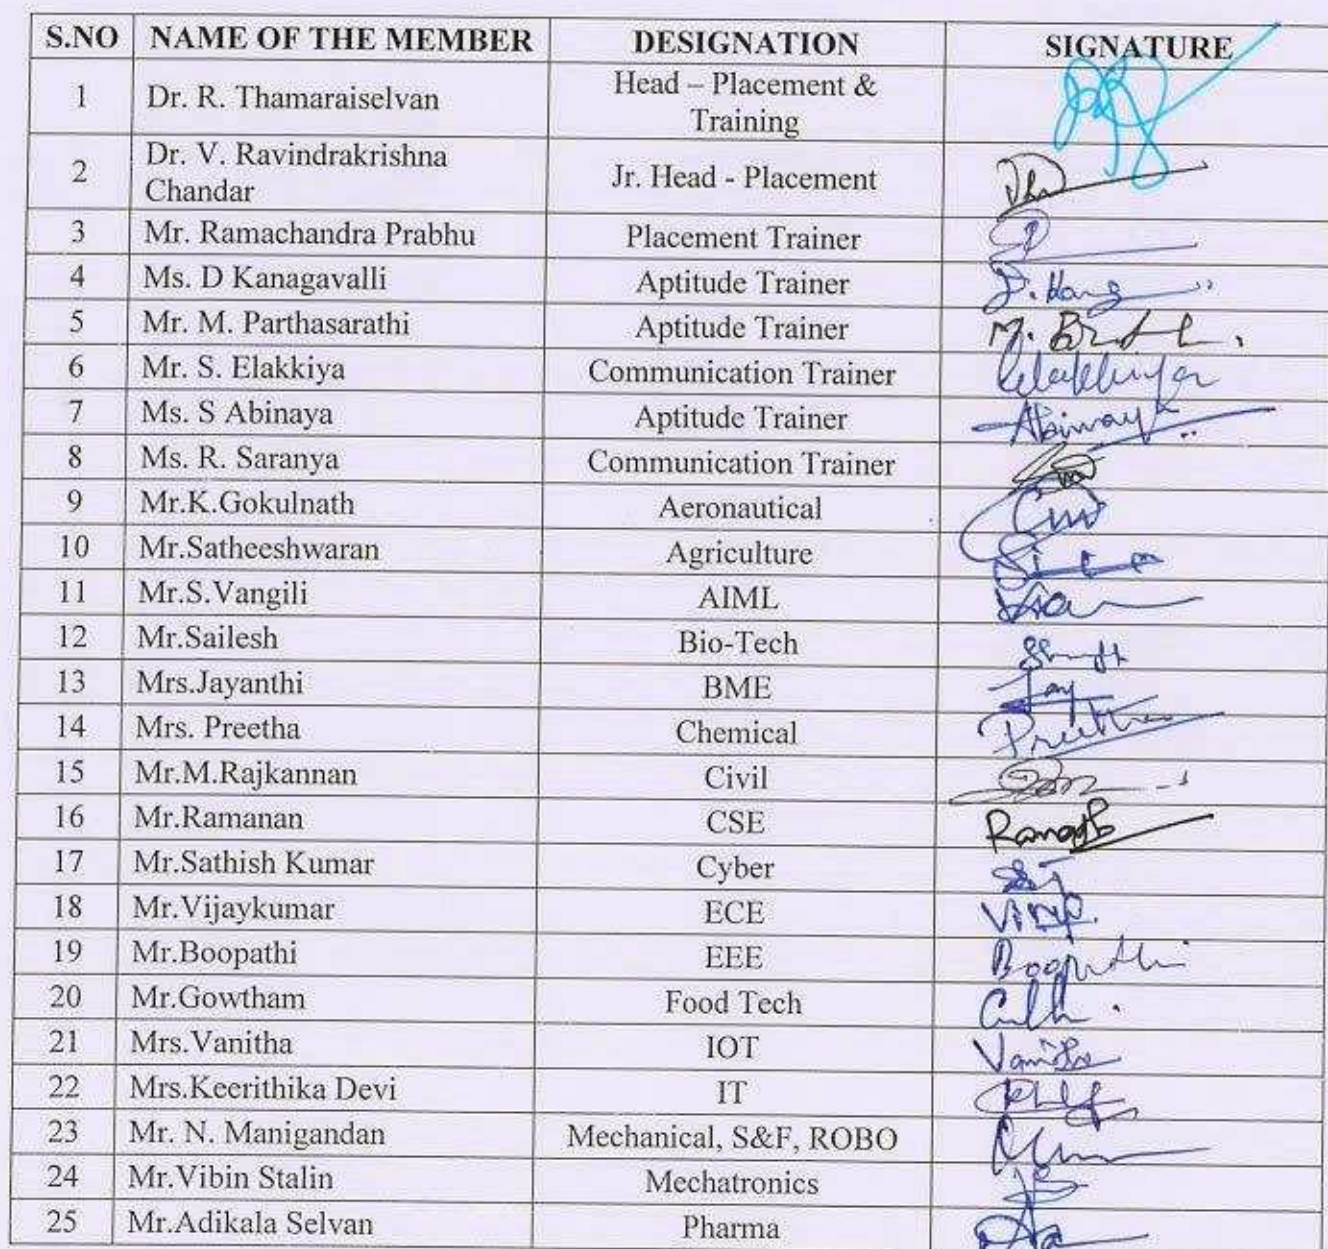 S.NO NAME OF THE MEMBER DESIGNATION SIGNATURE
1 Dr. R. Thamaraiselvan Head – Placement &
Training
2 Dr. V. Ravindrakrishna
Chandar Jr. Head - Placement
3 Mr. Ramachandra Prabhu Placement Trainer
4 Ms. D Kanagavalli Aptitude Trainer
5 Mr. M. Parthasarathi Aptitude Trainer
6 Mr. S. Elakkiya Communication Trainer
7 Ms. S Abinaya Aptitude Trainer Abinaya
8 Ms. R. Saranya Communication Trainer
9 Mr.K.Gokulnath Aeronautical
10 Mr.Satheeshwaran Agriculture
11 Mr.S.Vangili AIML
12 Mr.Sailesh Bio-Tech
13 Mrs.Jayanthi BME Jay
14 Mrs. Preetha Chemical Preetha
15 Mr.M.Rajkannan Civil
16 Mr.Ramanan CSE
17 Mr.Sathish Kumar Cyber
18 Mr.Vijaykumar ECE
19 Mr.Boopathi EEE Boopathi
20 Mr.Gowtham Food Tech
21 Mrs.Vanitha IOT Vanitha
22 Mrs.Keerithika Devi IT
23 Mr. N. Manigandan Mechanical, S&F, ROBO
24 Mr.Vibin Stalin Mechatronics
25 Mr.Adikala Selvan Pharma